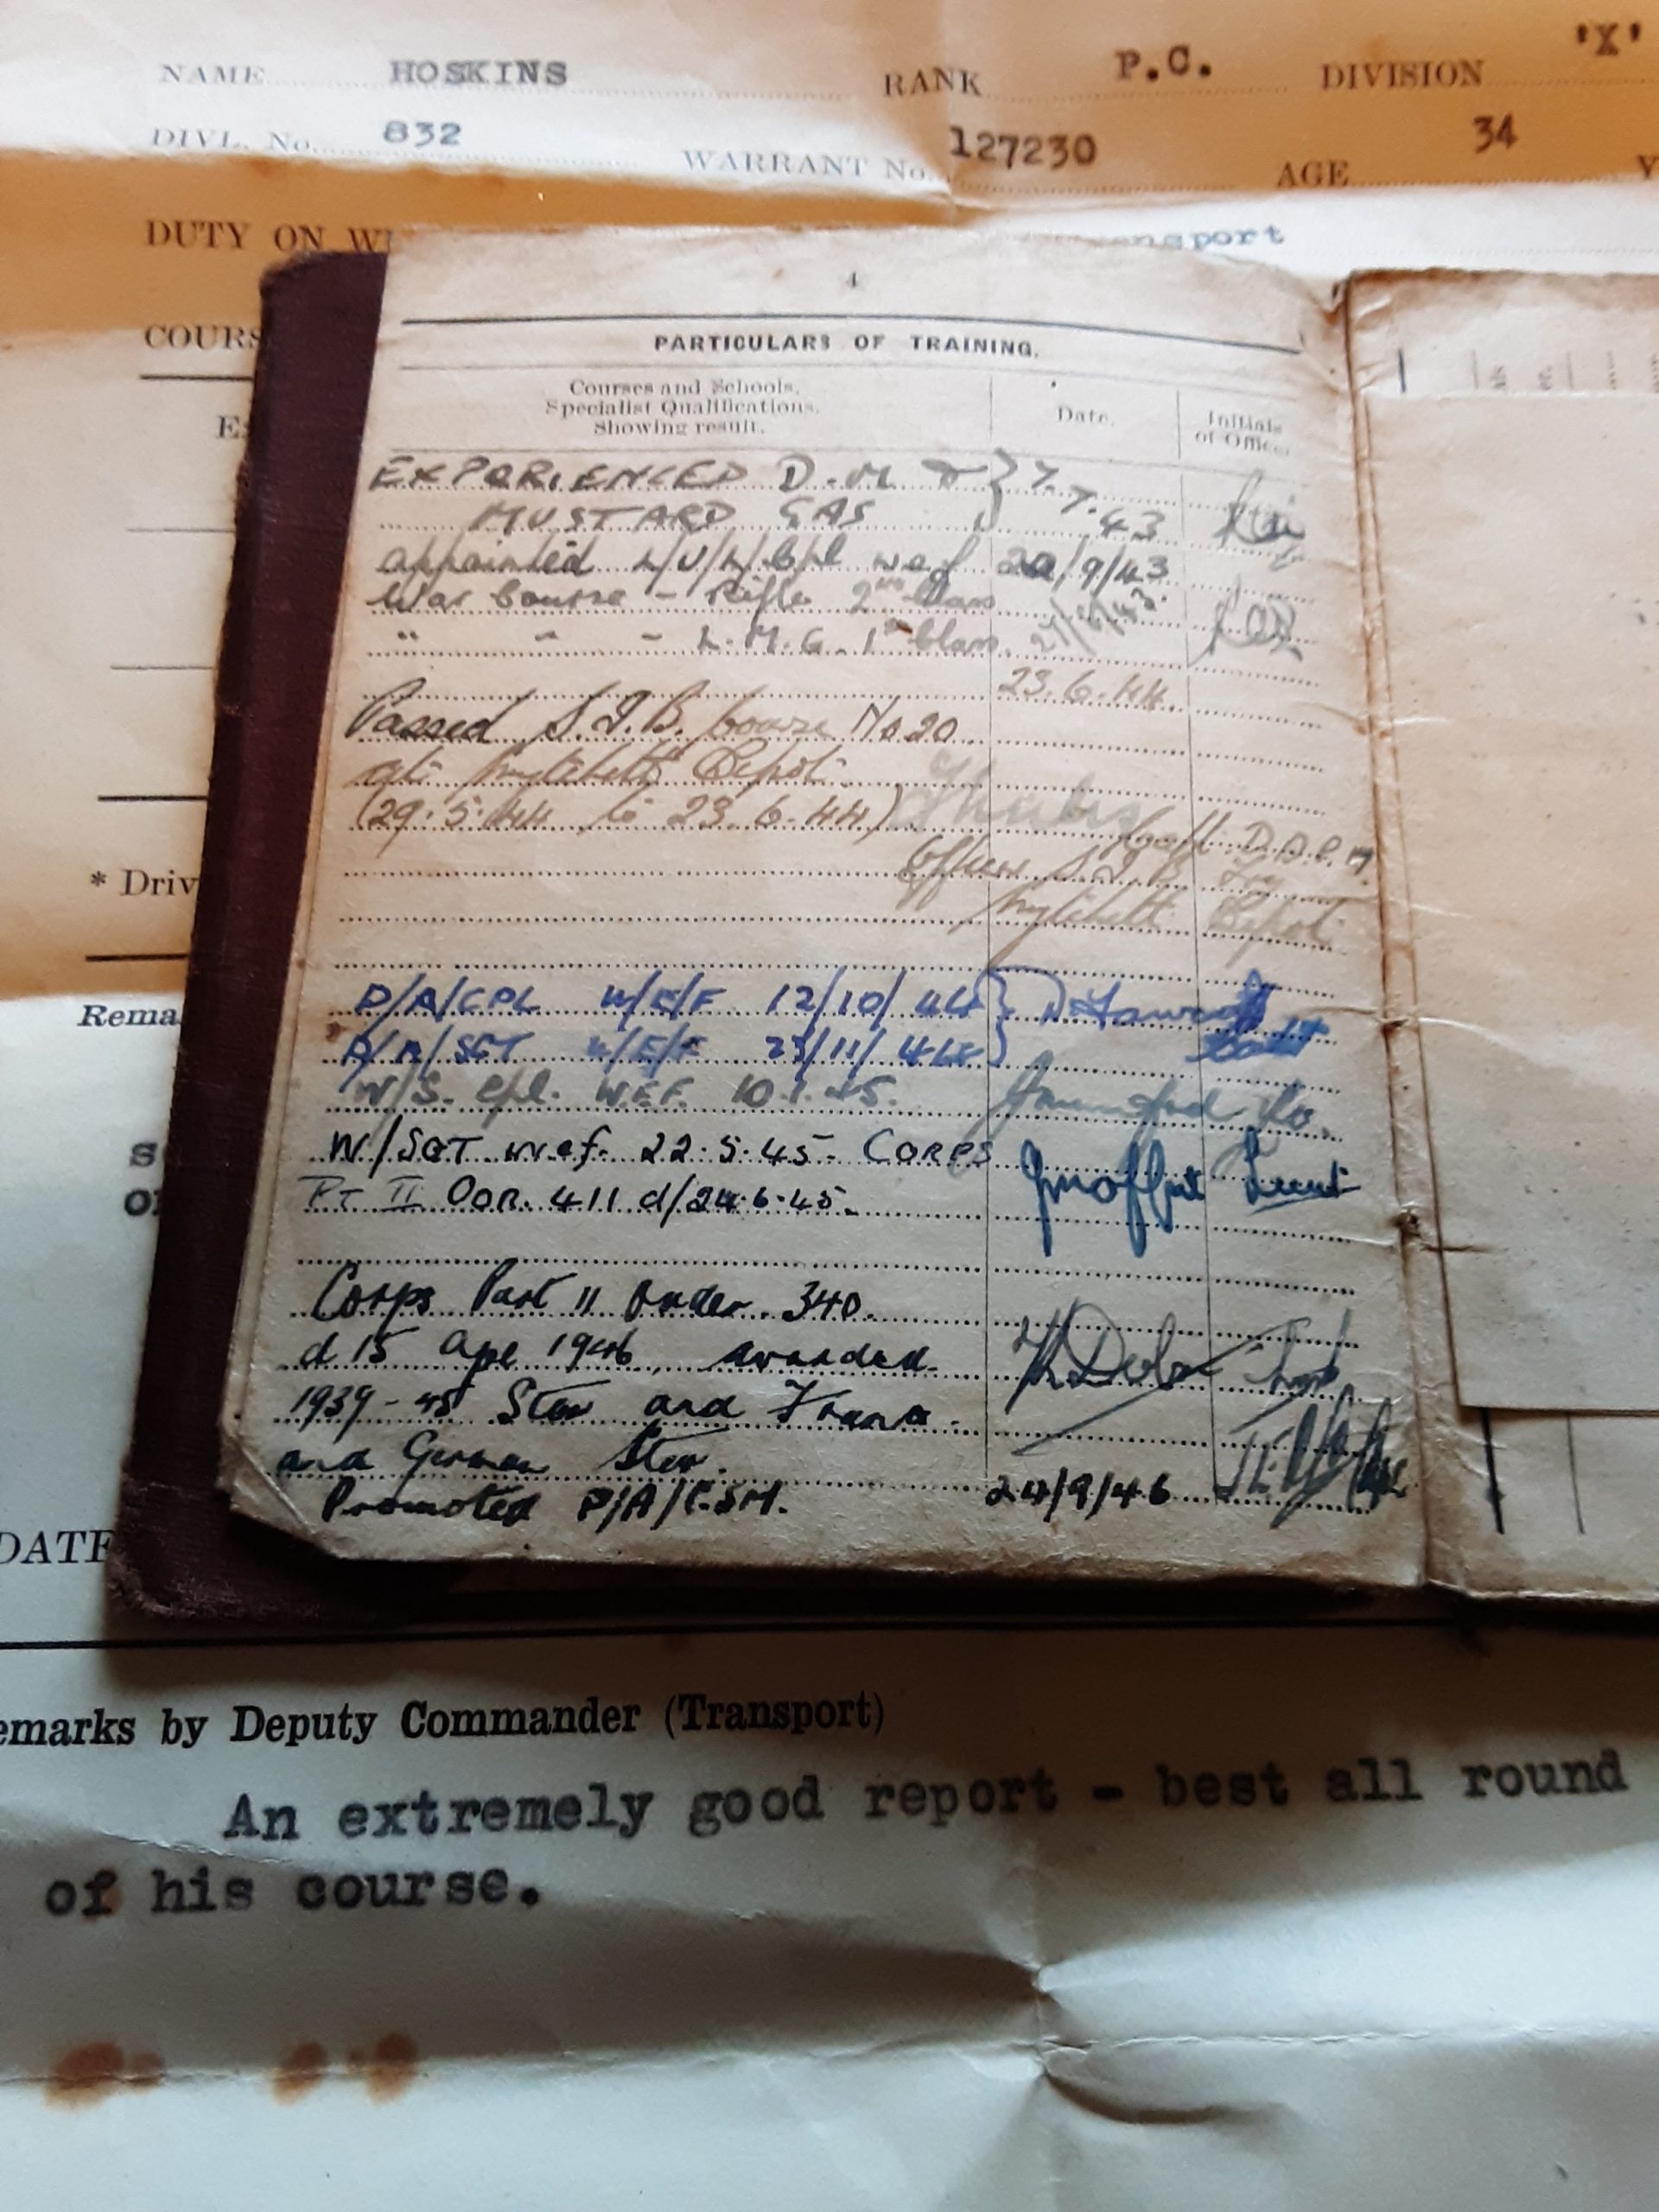 NAME HOSKINS RANK P.C. DIVISION 'X'
DIVL. No. 832 WARRANT No. 127230 AGE 34 Y
DUTY ON WH nsport
COURS
4
PARTICULARS OF TRAINING.
Courses and Schools, Specialist Qualifications, Showing result.
Date.
Initials of Officer
EXPERIENCED D.M.T } 7.7.43
MUSTARD GAS
appointed L/U/L/Cpl wef 20/9/43
War Course - Rifle 2nd Class
" " - L.M.G. 1st Class
23.6.44
Passed S.I.B. Course No 20
at Mytchett Depot
(29.5.44 to 23.6.44)
Capt. D.A.P.M
Officer S.I.B. Trg
Mytchett Depot
P/A/CPL W/E/F 12/10/44 }
P/A/SGT W/E/F 23/11/44 }
W/S. Cpl. W.E.F. 10.1.45.
W/SGT w.e.f. 22.5.45. CORPS
PT II OOR. 411 d/24.6.45.
JMoffat Lieut
Corps Part II Order 340.
d 15 Apl 1946, awarded
1939-45 Star and France
and German Star.
Promoted P/A/C.S.M. 24/9/46
E
* Driv
Rema
S
O
DATE
emarks by Deputy Commander (Transport)
An extremely good report - best all round
of his course.